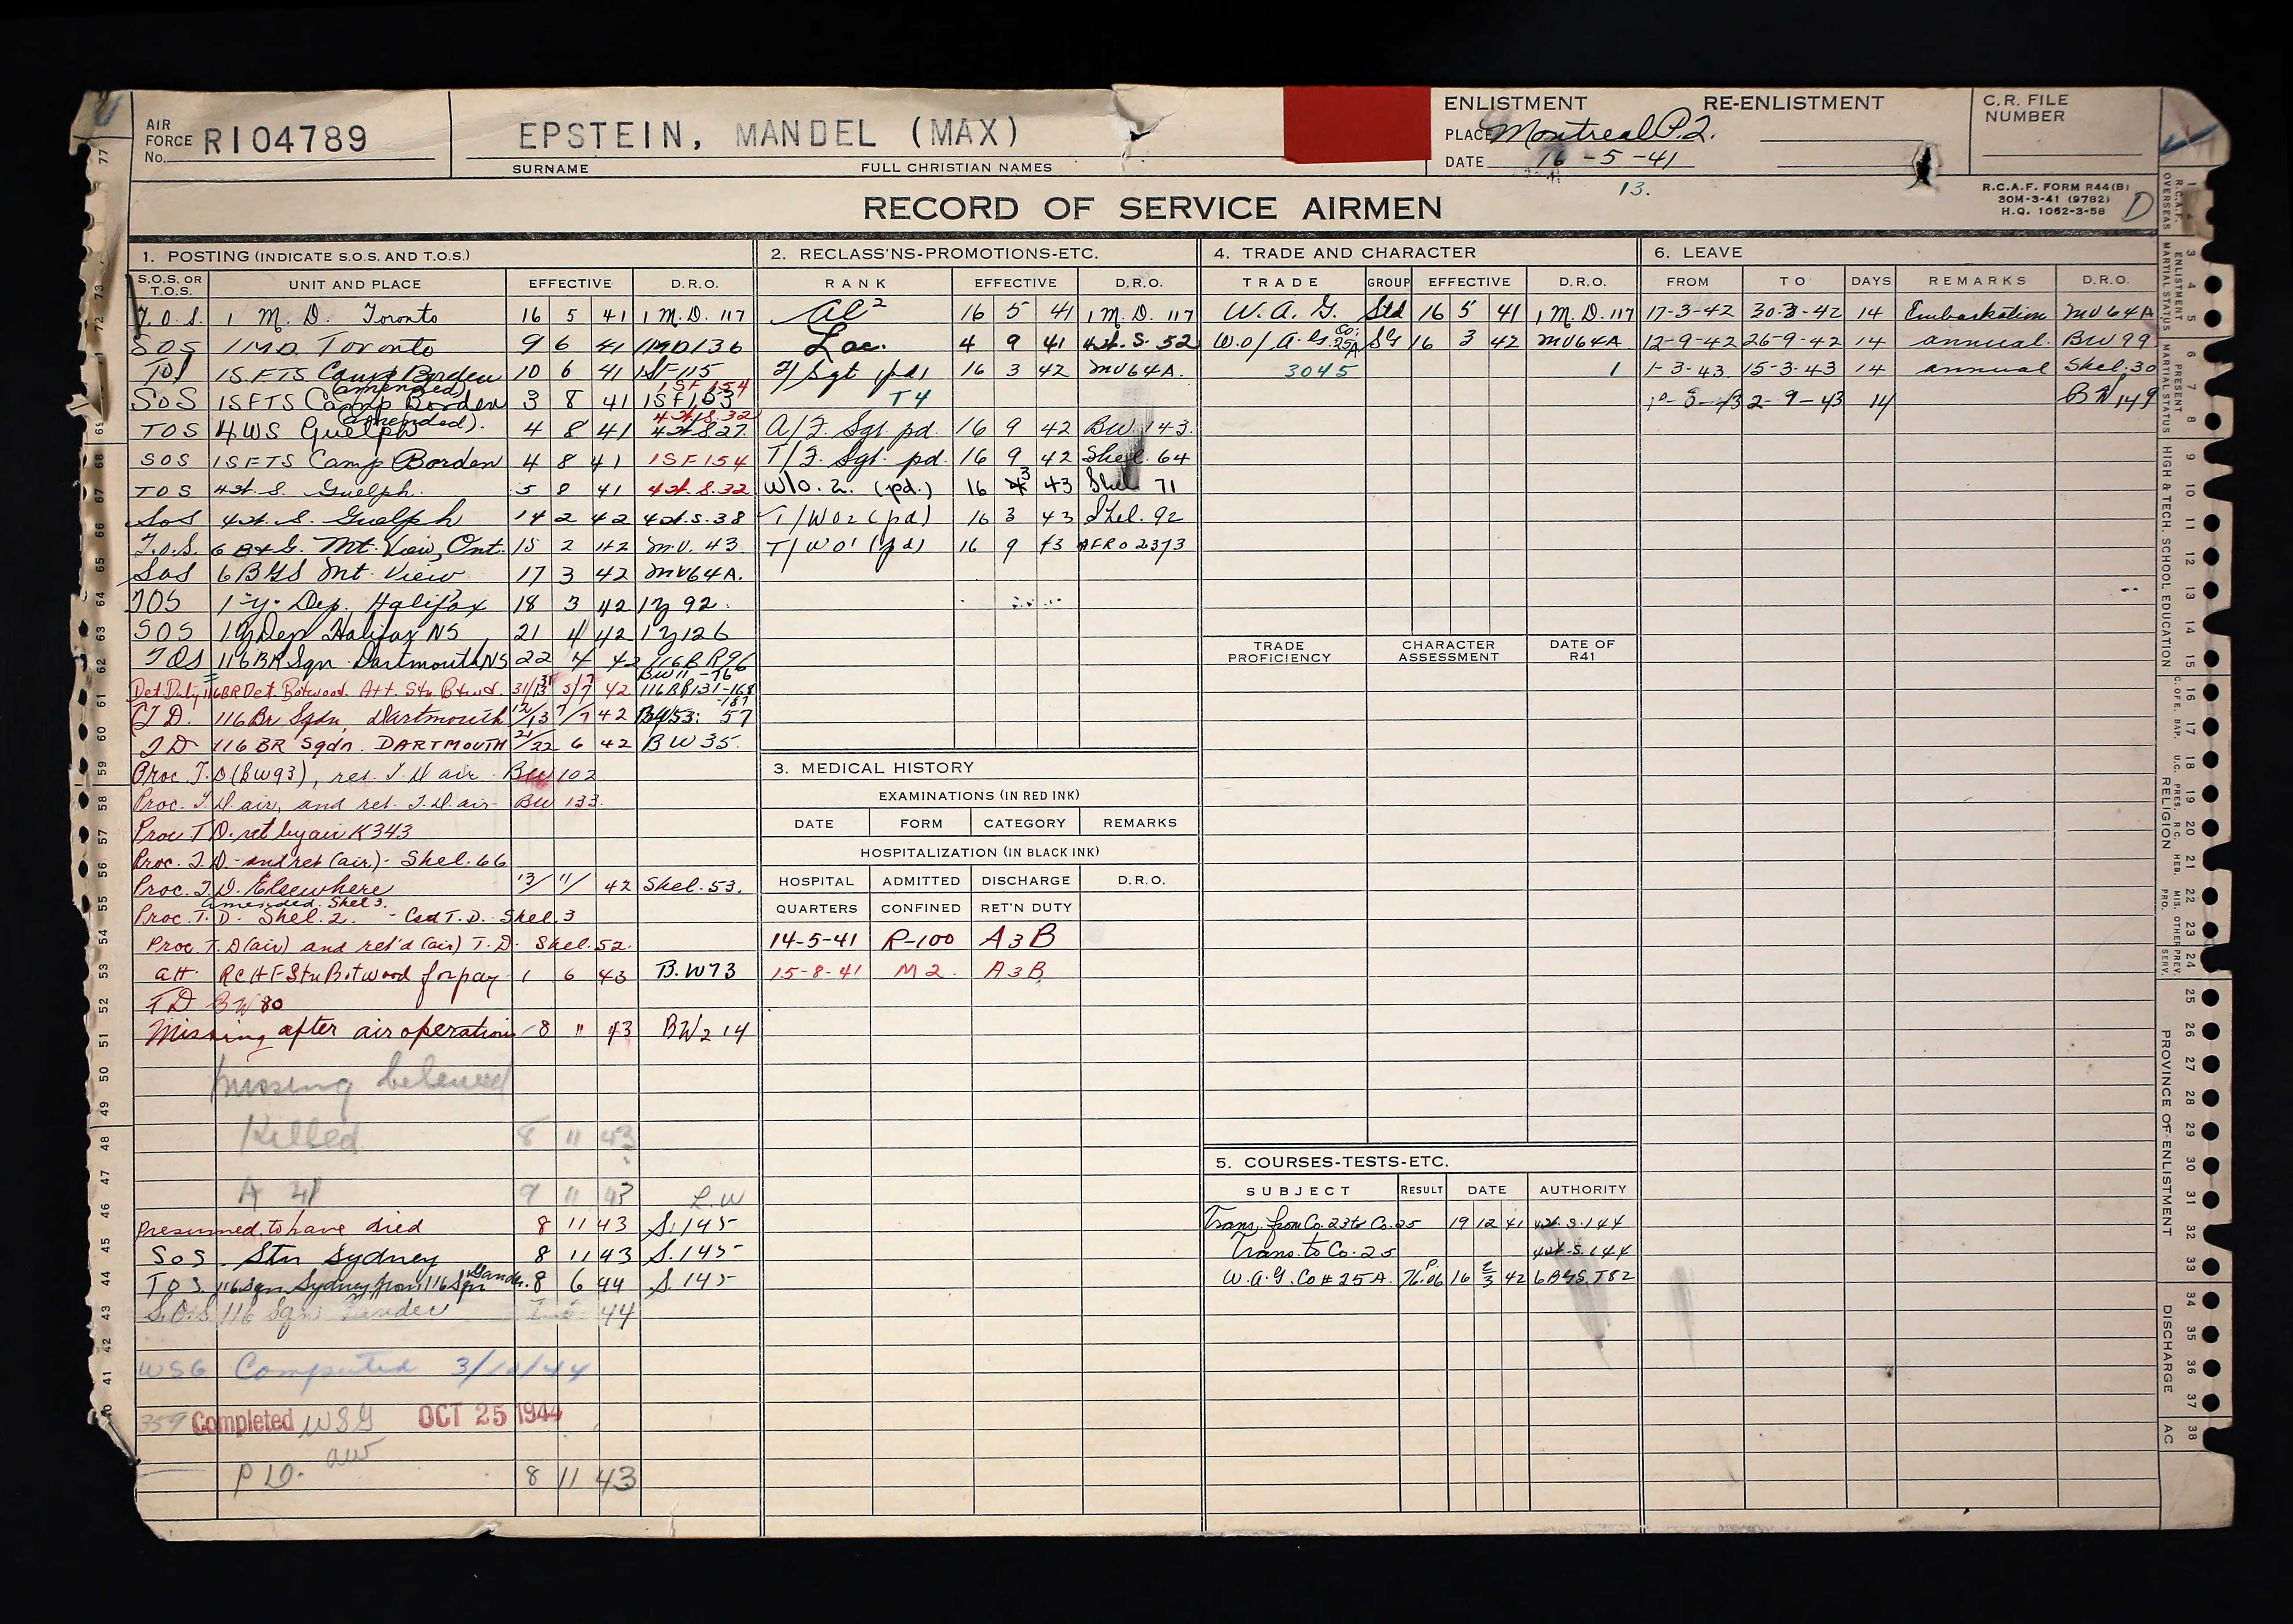 AIR FORCE No. R104789
EPSTEIN, MANDEL (MAX)
SURNAME FULL CHRISTIAN NAMES
ENLISTMENT RE-ENLISTMENT
PLACE Montreal P.Q.
DATE 16-5-41
13.
C.R. FILE NUMBER
R.C.A.F. FORM R44(B)
30M-3-41 (9782)
H.Q. 1062-3-58
D
RECORD OF SERVICE AIRMEN
1. POSTING (INDICATE S.O.S. AND T.O.S.)
S.O.S. OR T.O.S. UNIT AND PLACE EFFECTIVE D.R.O.
T.O.S. 1 M. D. Toronto 16 5 41 1 M.D. 117
SOS 1 M.D. Toronto 9 6 41 1MD136
TOS 1SFTS Camp Borden 10 6 41 1SF115
(amended) 1SF154
SOS 1SFTS Camp Borden 3 8 41 1SF153
(amended). 4W.S.32
TOS 4WS Guelph 4 8 41 4W.S.27
SOS 1SFTS Camp Borden 4 8 41 1SF154
TOS 4W.S. Guelph. 5 8 41 4W.S.32
SOS 4W.S. Guelph 14 2 42 4W.S.38
T.O.S. 6 B&G. Mt. View, Ont. 15 2 42 M.V. 43
SOS 6 BGS Mt. View 17 3 42 MV64A.
TOS 1 "Y" Dep. Halifax 18 3 42 1Y 92.
SOS 1 Y Dep Halifax NS 21 4 42 1Y126
TOS 116BR Sqn Dartmouth NS 22 4 42 116BR96
BW11-76
Det. Duty 116BR Det. Botwood. Att. Stn Btwd. 42 116BR131-168
-187
C.T.D. 116 Br Sqdn, Dartmouth 12/13 7/7 42 BW53: 57
TD 116 BR Sqdn. DARTMOUTH 21/22 6 42 BW35.
Proc. T.D (BW93), ret. T.D air BW102
Proc. T.D. air, and ret. T.D. air BW 133.
Proc T.D. ret by air K343
Proc. T.D. and ret (air) - Shel. 66
Proc. T.D. Elsewhere 13/11/42 Shel. 53.
amended Shel 3.
Proc. T.D. Shel. 2. - Ced T.D. Shel. 3
Proc T.D (air) and ret'd (air) T.D. Shel. 52.
att. RCAF Stn Botwood for pay 1 6 43 B.W73
TD BW80
Missing after air operations 8 11 43 BW214
missing believed
Killed 8 11 43
A 41 9 11 43 L.W
Presumed to have died 8 11 43 S.145
SOS Stn Sydney 8 11 43 S.145
TOS 116 Sqn Sydney from 116 Sqn Gander. 8 6 44 S.145
S.O.S 116 Sqn Gander 44
WSG Computed 3/10/44
359 Completed WSG OCT 25 1944
aw
P.D. 8 11 43
2. RECLASS'NS-PROMOTIONS-ETC.
RANK EFFECTIVE D.R.O.
AC2 16 5 41 1 M.D. 117
Lac. 4 9 41 4W.S. 52
T/Sgt (pd) 16 3 42 MV64A.
T4
A/F. Sgt. pd. 16 9 42 BW 143.
T/F. Sgt. pd. 16 9 42 Shel. 64
W/O. 2. (pd.) 16 3 43 Shel 71
T/WO2 (pd) 16 3 43 Shel. 92
T/WO1 (pd) 16 9 43 AFRO 2373
3. MEDICAL HISTORY
EXAMINATIONS (IN RED INK)
DATE FORM CATEGORY REMARKS
HOSPITALIZATION (IN BLACK INK)
HOSPITAL ADMITTED DISCHARGE D.R.O.
QUARTERS CONFINED RET'N DUTY
14-5-41 R-100 A3B
15-8-41 M2. A3B
4. TRADE AND CHARACTER
TRADE GROUP EFFECTIVE D.R.O.
W.A.G. Std 16 5 41 1 M.D. 117
W.O/A.G. Co. 25A SG 16 3 42 MV64A
3045 1
TRADE PROFICIENCY CHARACTER ASSESSMENT DATE OF R41
5. COURSES-TESTS-ETC.
SUBJECT RESULT DATE AUTHORITY
Trans. from Co. 23 to Co. 25 19 12 41 4W.S.144
Trans. to Co. 25 4W.S.144
W.A.G. Co # 25A. P. 76.06 16 2/3 42 6BGS.T82
6. LEAVE
FROM TO DAYS REMARKS D.R.O.
17-3-42 30-3-42 14 Embarkation MV64A
12-9-42 26-9-42 14 annual. BW99
1-3-43 15-3-43 14 annual Shel. 30
2-9-43 14 BW149
R.C.A.F. OVERSEAS
ENLISTMENT MARTIAL STATUS
PRESENT MARTIAL STATUS
HIGH & TECH. SCHOOL EDUCATION
C. OF E. BAP. U.C. PRES. R.C. HEB. MIS. OTHER PRO.
RELIGION
PREV. SERV.
PROVINCE OF ENLISTMENT
DISCHARGE
AC
1 2 3 4 5 6 7 8 9 10 11 12 13 14 15 16 17 18 19 20 21 22 23 24 25 26 27 28 29 30 31 32 33 34 35 36 37 38
77 73 72 69 68 67 66 65 64 63 62 61 60 59 58 57 56 55 54 53 52 51 50 49 48 47 46 45 44 43 42 41